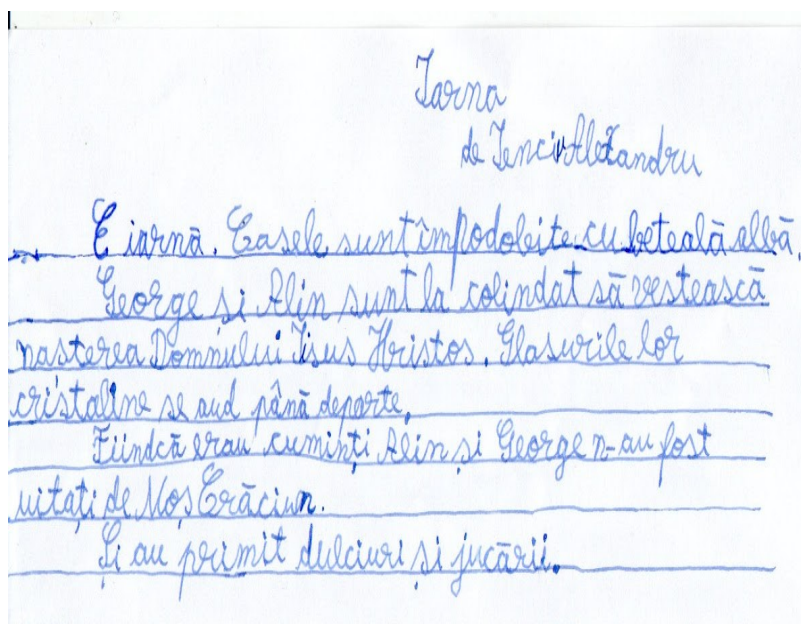 Iarna
de Ienciu Alexandru
E iarnă. Casele sunt împodobite cu beteală albă.
George și Alin sunt la colindat să vestească
nasterea Domnului Iisus Hristos. Glasurile lor
cristaline se aud până departe.
Fiindcă erau cuminți Alin și George n-au fost
uitați de Moș Crăciun.
Și au primit dulciuri și jucării.